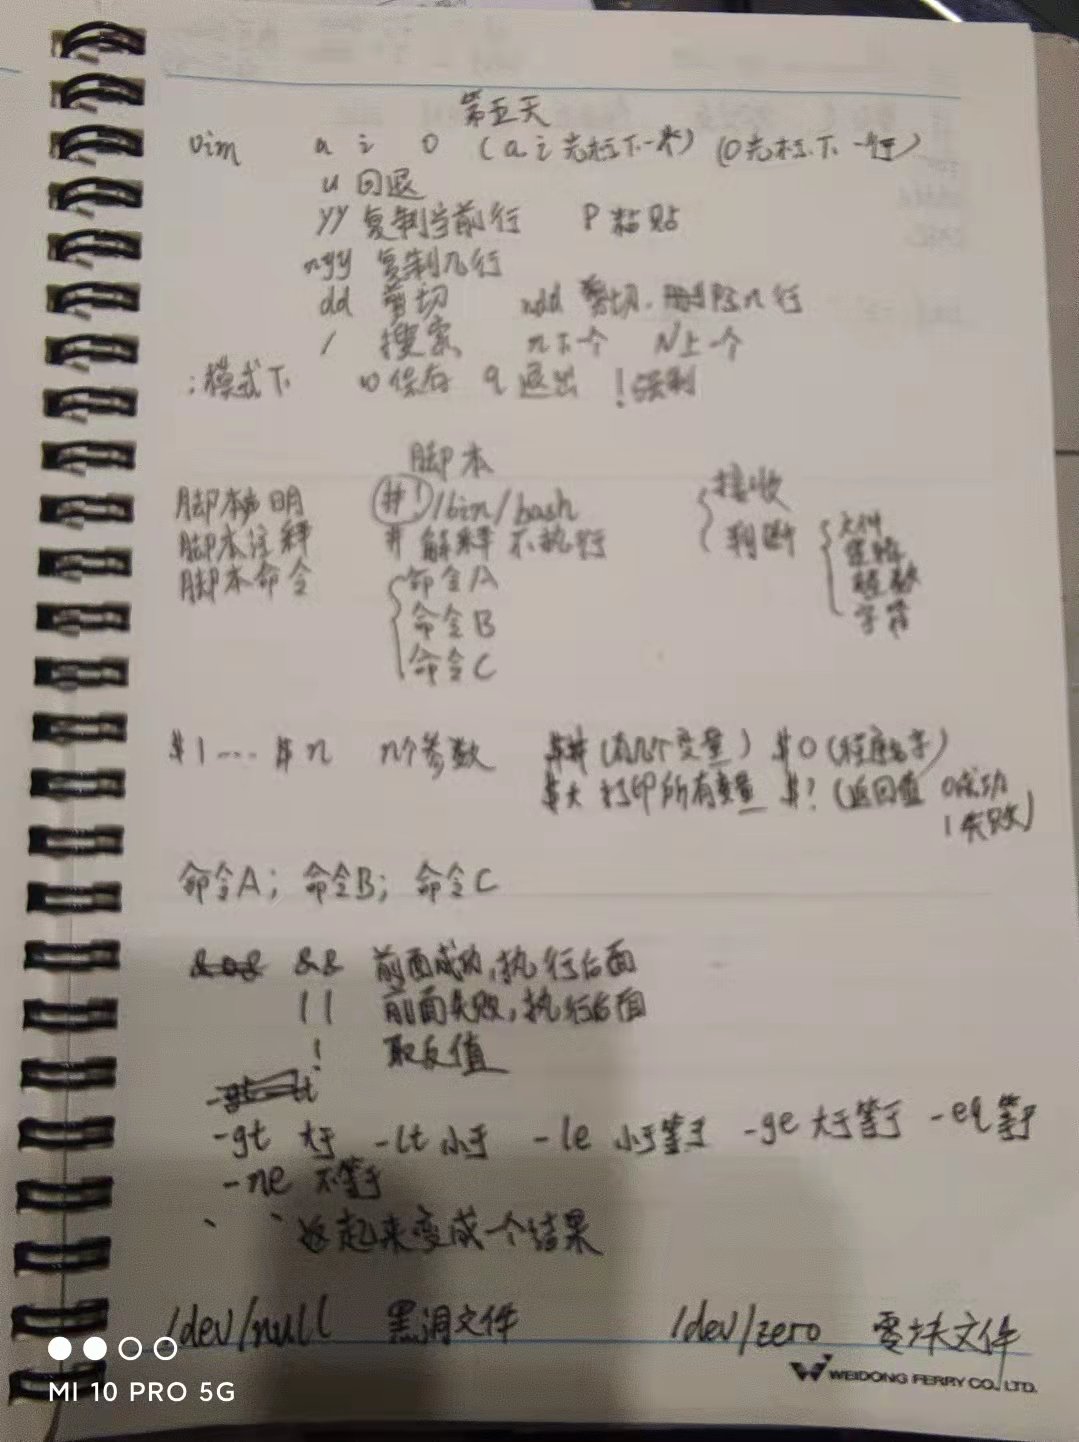 第五天
vim a i o (a i 光标下一个) (o光标下一行)
u 回退
yy 复制当前行 P 粘贴
nyy 复制几行
dd 剪切 ndd 剪切.删除n行
/ 搜索 n下个 N上一个
:模式下 w保存 q退出 !强制
脚本
脚本声明 #!/bin/bash { 接收
脚本注释 # 解释 不执行 判断 { 文件
脚本命令 { 命令A
命令B 字符
命令C
$1…$n n个参数 $#(有几个变量) $0(程序名字)
$* 打印所有变量 $?(返回值 0成功
1失败)
命令A; 命令B; 命令C
&& 前面成功,执行后面
|| 前面失败,执行后面
! 取反值
-gt 大于 -lt 小于 -le 小于等于 -ge 大于等于 -eq 等于
-ne 不等于
` ` 起来变成一个结果
/dev/null 黑洞文件 /dev/zero 零块文件
WEIDONG FERRY CO., LTD.
MI 10 PRO 5G